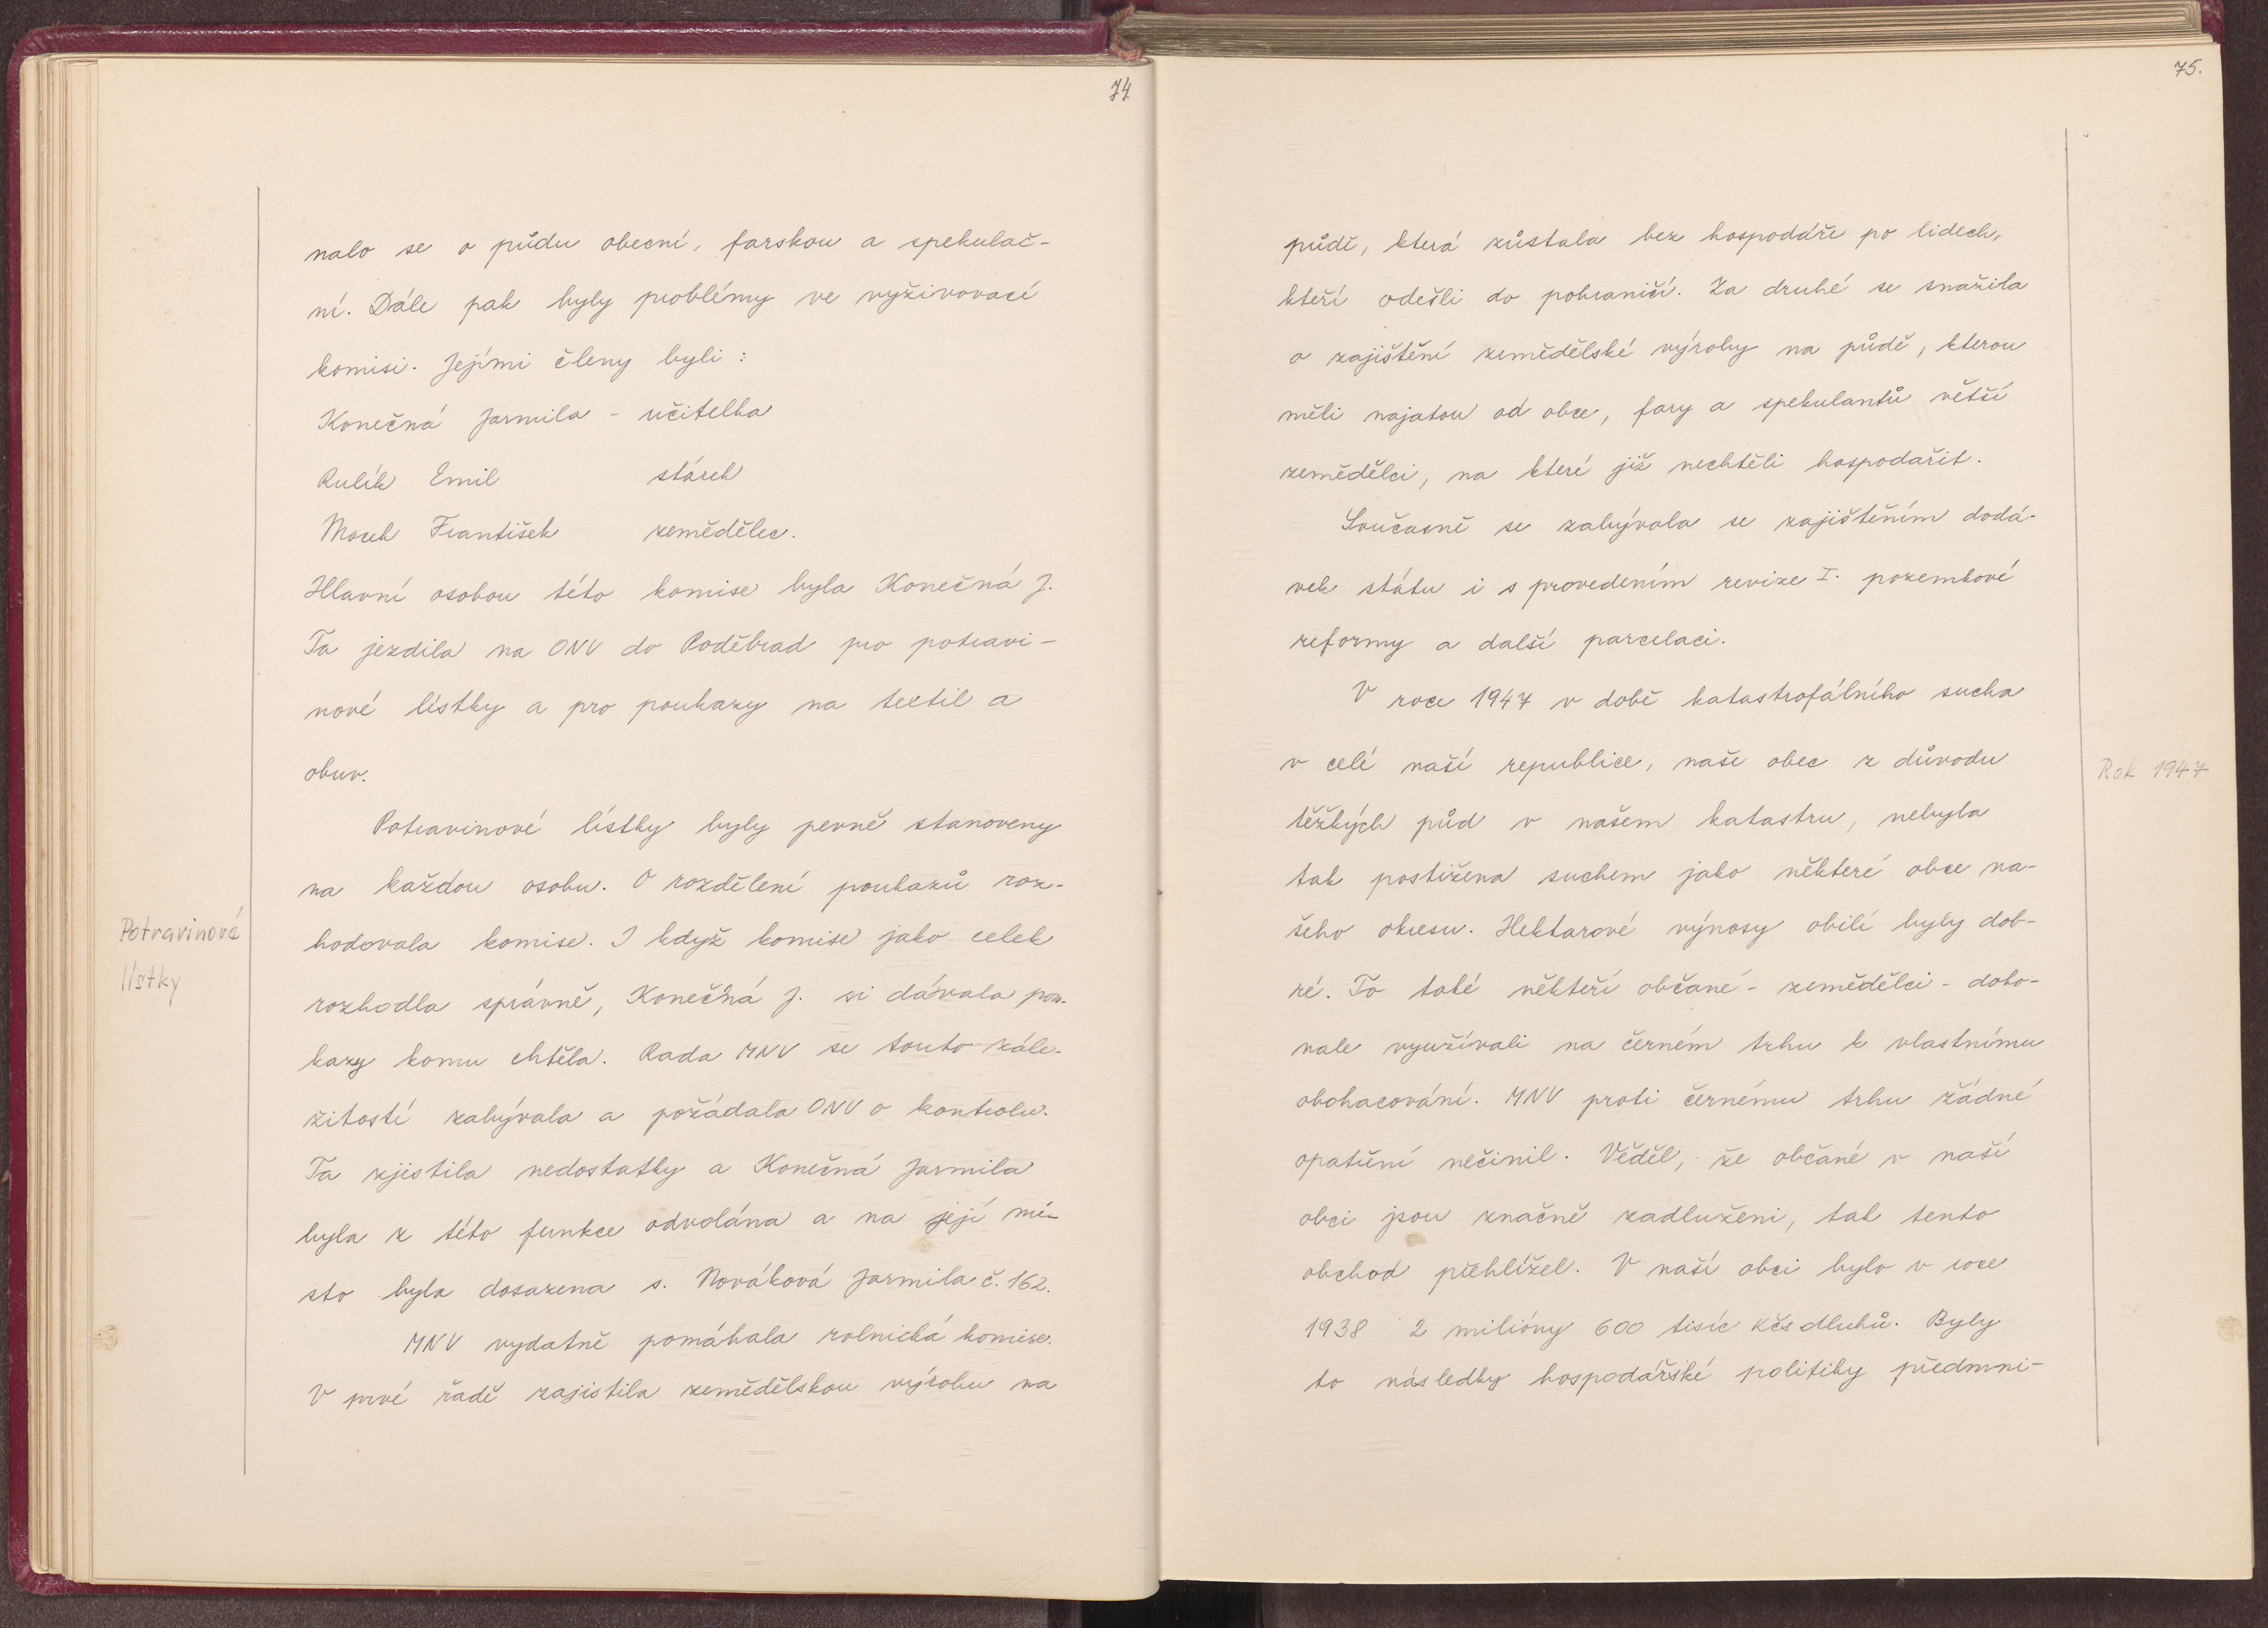 74
nalo se o půdu obecní, farskou a spekulač-
ní. Dále pak byly problémy ve vyživovací
komisi. Jejími členy byli :
Konečná Jarmila - učitelka
Rulík Emil stárek
Mocek František zemědělec.
Hlavní osobou této komise byla Konečná J.
Ta jezdila na ONV do Poděbrad pro potravi-
nové lístky a pro poukazy na textil a
obuv.
Potravinové lístky byly pevně stanoveny
na každou osobu. O rozdělení poukazů roz-
Potravinové
lístky
hodovala komise. I když komise jako celek
rozhodla správně, Konečná J. si dávala pou-
kazy komu chtěla. Rada MNV se touto zále-
žitostí zabývala a požádala ONV o kontrolu.
Ta zjistila nedostatky a Konečná Jarmila
byla z této funkce odvolána a na její mí-
sto byla dosazena s. Nováková Jarmila č. 162.
MNV vydatně pomáhala rolnická komise.
V prvé řadě zajistila zemědělskou výrobu na
75.
půdě, která zůstala bez hospodáře po lidech,
kteří odešli do pohraničí. Za druhé se snažila
o zajištění zemědělské výroby na půdě, kterou
měli najatou od obce, fary a spekulantů větší
zemědělci, na které již nechtěli hospodařit.
Současně se zabývala se zajištěním dodá-
vek státu i s provedením revize I. pozemkové
reformy a další parcelaci.
V roce 1947 v době katastrofálního sucha
v celé naší republice, naše obec z důvodu
Rok 1947
těžkých půd v našem katastru, nebyla
tak postižena suchem jako některé obce na-
šeho okresu. Hektarové výnosy obilí byly dob-
ré. To také někteří občané - zemědělci - doko-
nale využívali na černém trhu k vlastnímu
obohacování. MNV proti černému trhu žádné
opatření nečinil. Věděl, že občané v naší
obci jsou značně zadluženi, tak tento
obchod přehlížel. V naší obci bylo v roce
1938 2 milióny 600 tisíc Kčs dluhů. Byly
to následky hospodářské politiky předmni-